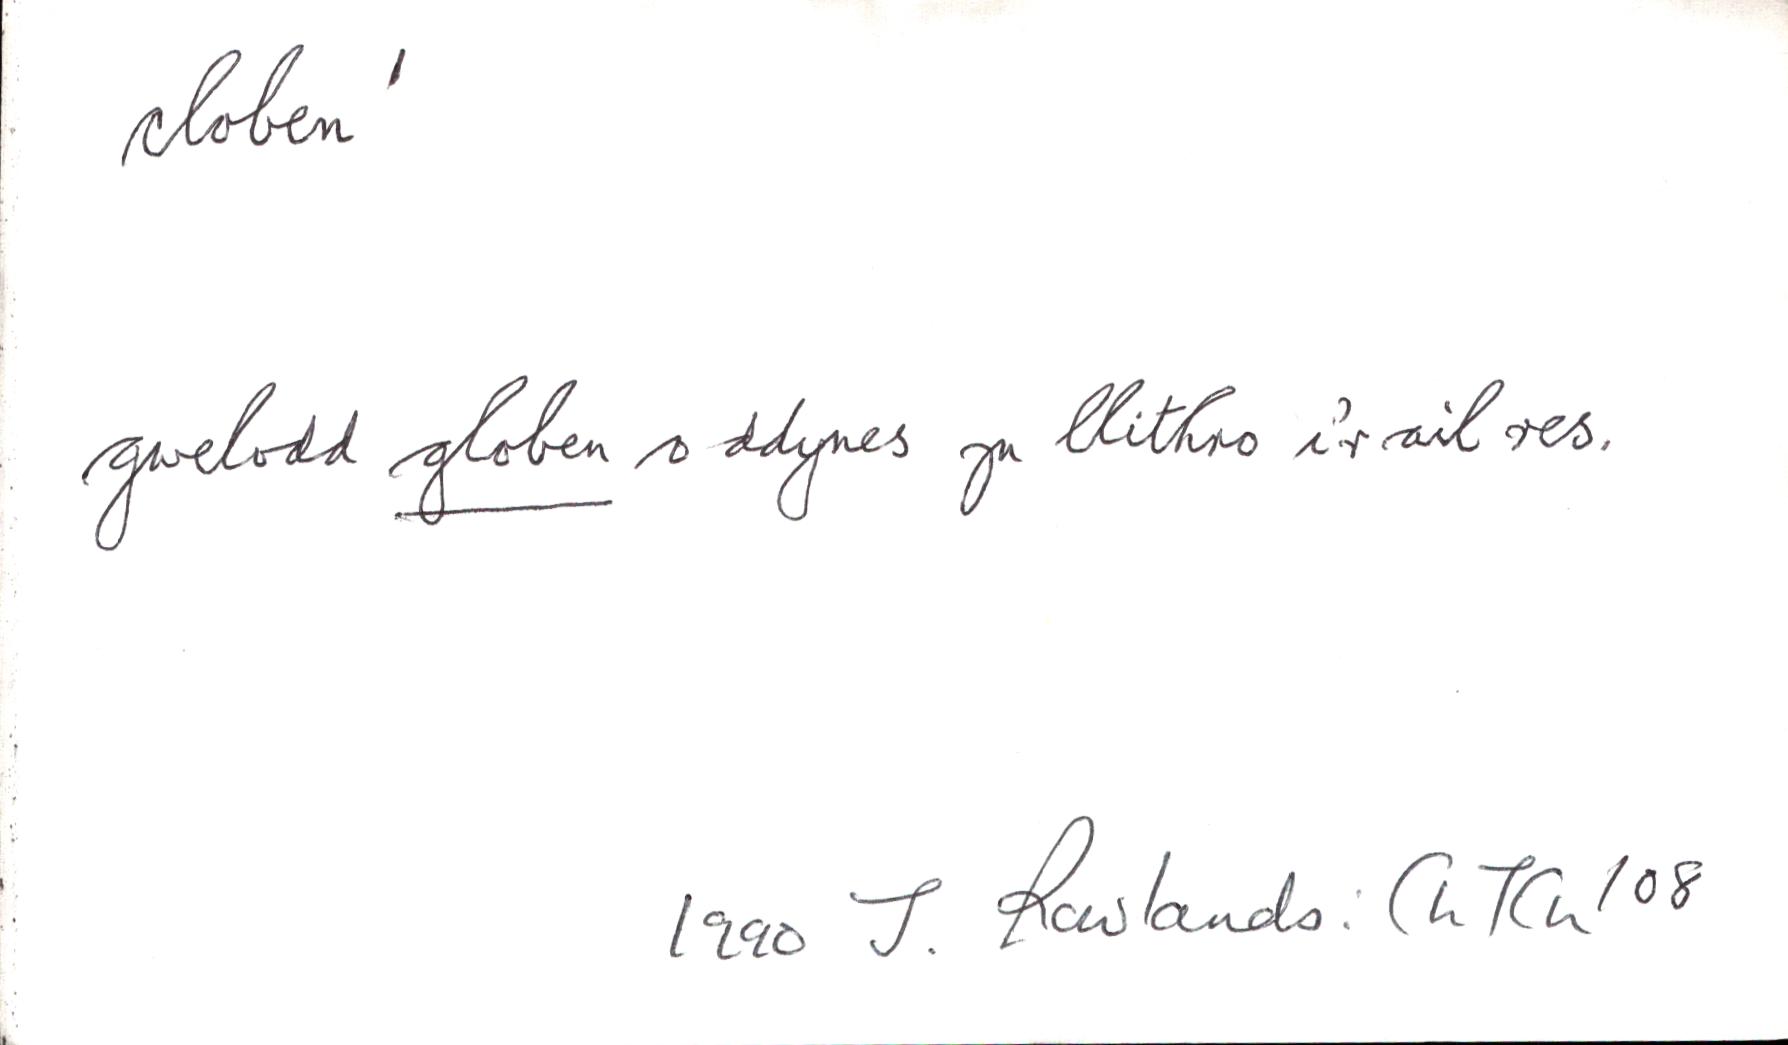 cloben¹
gwelodd globen o ddynes yn llithro i'r ail res.
1990 J. Rowlands: Ch TCh 108